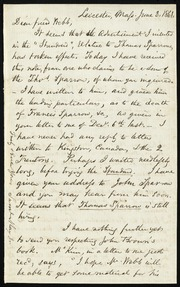 Leicester, Mass. June 3. 1861.
Dear friend Webb,
It seems that the Advertisement I inserted
in the "Standard", relative to Thomas Sparrow,
has proved effectual. Today I have received
this note, from one who claims to be a son of
the Thos. Sparrow, of whom you inquired.
I have written to him, and given him
the leading particulars, as to the death
of Francis Sparrow, &c, as given in
your letter to me of Dec. 6th last. I
have never had any reply to letters
written to Kingston, Canada, the 2
Trustees. Perhaps I waited needlessly
long, before trying the Standard. I have
given your address to John Sparrow
and you may hear from him too.
It seems that Thomas Sparrow is still
living.
I have nothing further yet
to send you respecting John Brown's
book. of him, in a letter to me just
rec'd, says, "I hope Mr. Webb will
be able to get some material for his